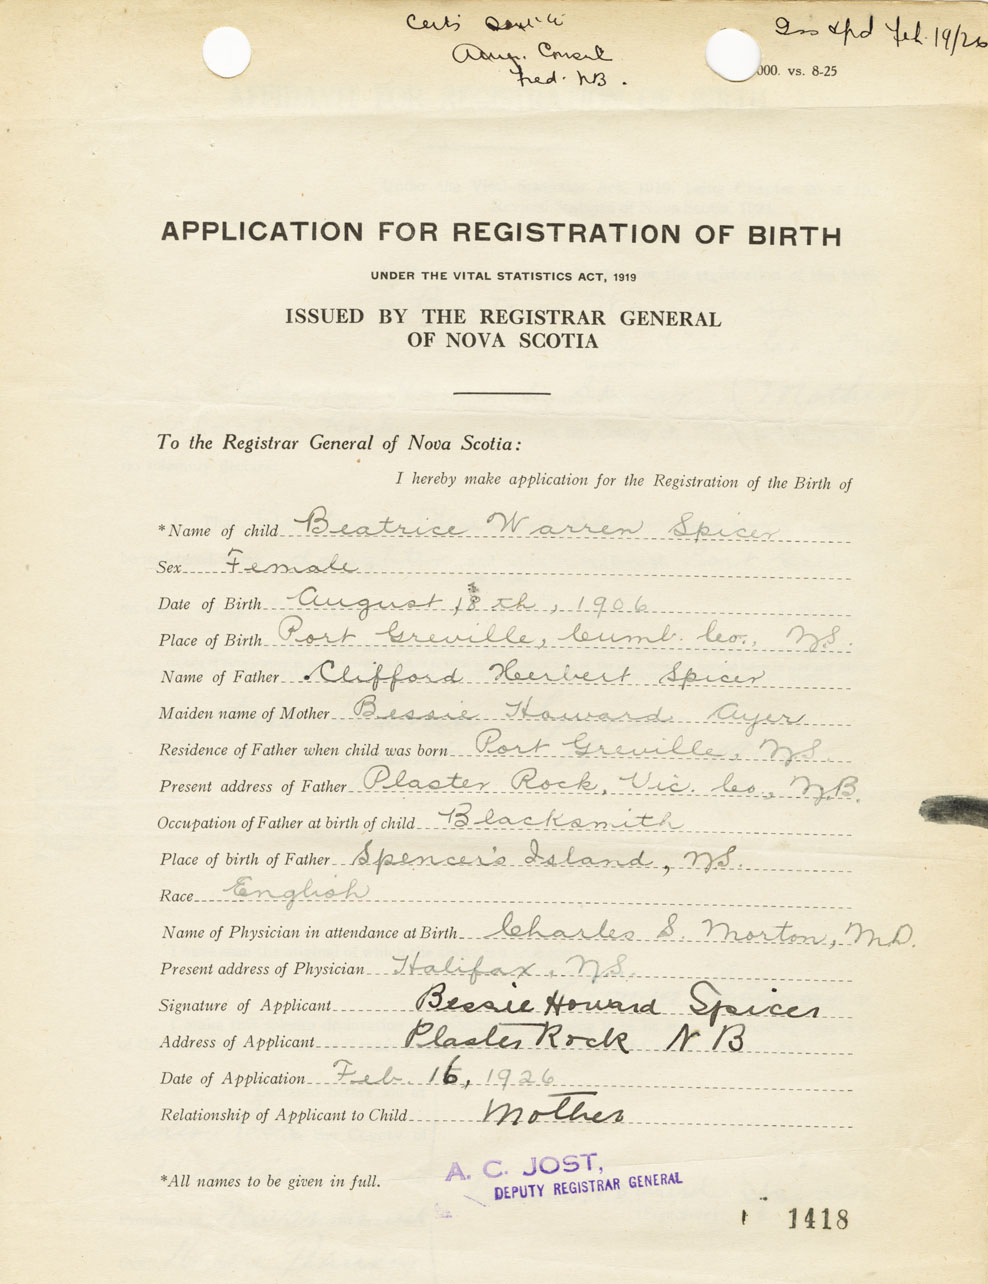 Amer. Consul
Fred. NB.
Feb. 19/26
000. vs. 8-25
APPLICATION FOR REGISTRATION OF BIRTH
UNDER THE VITAL STATISTICS ACT, 1919
ISSUED BY THE REGISTRAR GENERAL
OF NOVA SCOTIA
To the Registrar General of Nova Scotia:
I hereby make application for the Registration of the Birth of
*Name of child Beatrice Warren Spicer
Sex Female
Date of Birth August 18th, 1906
Place of Birth Port Greville, Cumb. Co., N.S.
Name of Father Clifford Herbert Spicer
Maiden name of Mother Bessie Howard Ayer
Residence of Father when child was born Port Greville, N.S.
Present address of Father Plaster Rock, Vic. Co., N.B.
Occupation of Father at birth of child Blacksmith
Place of birth of Father Spencer's Island, N.S.
Race English
Name of Physician in attendance at Birth Charles S. Morton, M.D.
Present address of Physician Halifax, N.S.
Signature of Applicant Bessie Howard Spicer
Address of Applicant Plaster Rock N B
Date of Application Feb. 16, 1926
Relationship of Applicant to Child Mother
*All names to be given in full.
A. C. JOST,
DEPUTY REGISTRAR GENERAL
1418